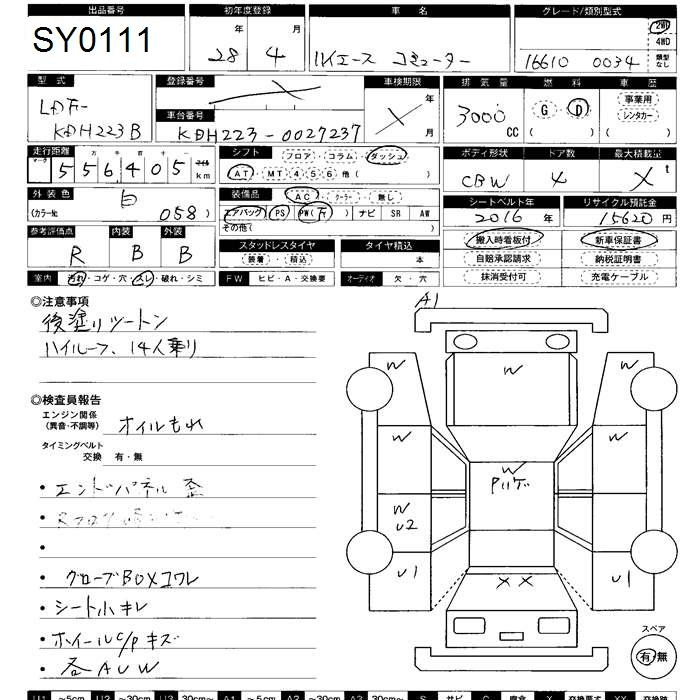 出品番号 初年度登録 車名 グレード/類別型式
SY0111 年 月 2WD
28 4 ハイエース コミューター 4WD
16610 0034 類型なし
型式 登録番号 車検期限 排気量 燃料 車歴
LDF- X 年 3000 G D 事業用
KDH223B 車台番号 X CC レンタカー
KDH223-0027237 月 ( ) ( )
走行距離 シフト フロア・コラム・ダッシュ ボディ形状 ドア数 最大積載量
マーク 十万 万 千 百 十 一 マイル
556405 km AT・MT 4 5 6 他( ) CBW 4 X t
外装色 装備品 AC・クーラー・無し シートベルト年 リサイクル預託金
白 エアバッグ PS PW(F) ナビ SR AW 2016年 15620円
(カラー№ 058) その他( )
参考評価点 内装 外装 スタッドレスタイヤ タイヤ積込 搬入時看板付 新車保証書
R B B 装着・積込 本 自賠承認請求 納税証明書
室内 汚れ・コゲ・穴・スレ・破れ・シミ FW ヒビ・A・交換要 オーディオ 欠・穴 抹消受付可 充電ケーブル
◎注意事項
後塗りツートン
ハイルーフ、14人乗り
◎検査員報告
エンジン関係
(異音・不調等) オイルもれ
タイミングベルト
交換 有・無
・エンドパネル歪
・Rフロア
・
・グローブBOXコワレ
・シート小キレ
・ホイールc/pキズ
・各AUW
A1
W
W W
W W
W
Pハゲ
W W
U2
U1 U1
XX
スペア
有・無
U1 ～5cm U2 ～30cm U3 30cm～ A1 ～5cm A2 ～30cm A3 30cm～ S サビ C 腐食 X 交換要す XX 交換跡